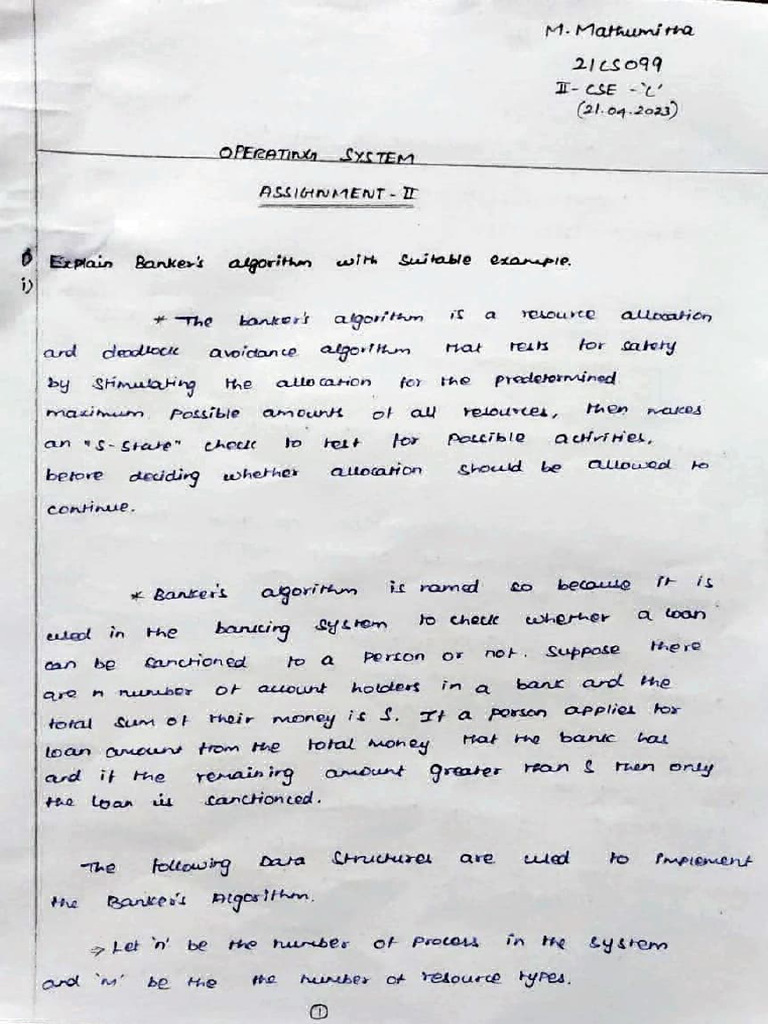 M. Mathumitha
21CS099
II - CSE - 'C'
(21.04.2023)
OPERATING SYSTEM
ASSIGNMENT - II
Explain Banker's algorithm with suitable example.
i)
* The banker's algorithm is a resource allocation
and deadlock avoidance algorithm that tests for safety
by stimulating the allocation for the predetermined
maximum possible amounts of all resources, then makes
an "S-state" check to test for possible activities,
before deciding whether allocation should be allowed to
continue.
* Banker's algorithm is named so because it is
used in the banking system to check whether a loan
can be sanctioned to a person or not. Suppose there
are n number of account holders in a bank and the
total sum of their money is S. If a person applies for
loan amount from the total money that the bank has
and if the remaining amount greater than S then only
the loan is sanctionced.
The following Data Structures are used to implement
the Banker's Algorithm.
⇒ Let 'n' be the number of process in the system
and 'm' be the the number of resource types.
1